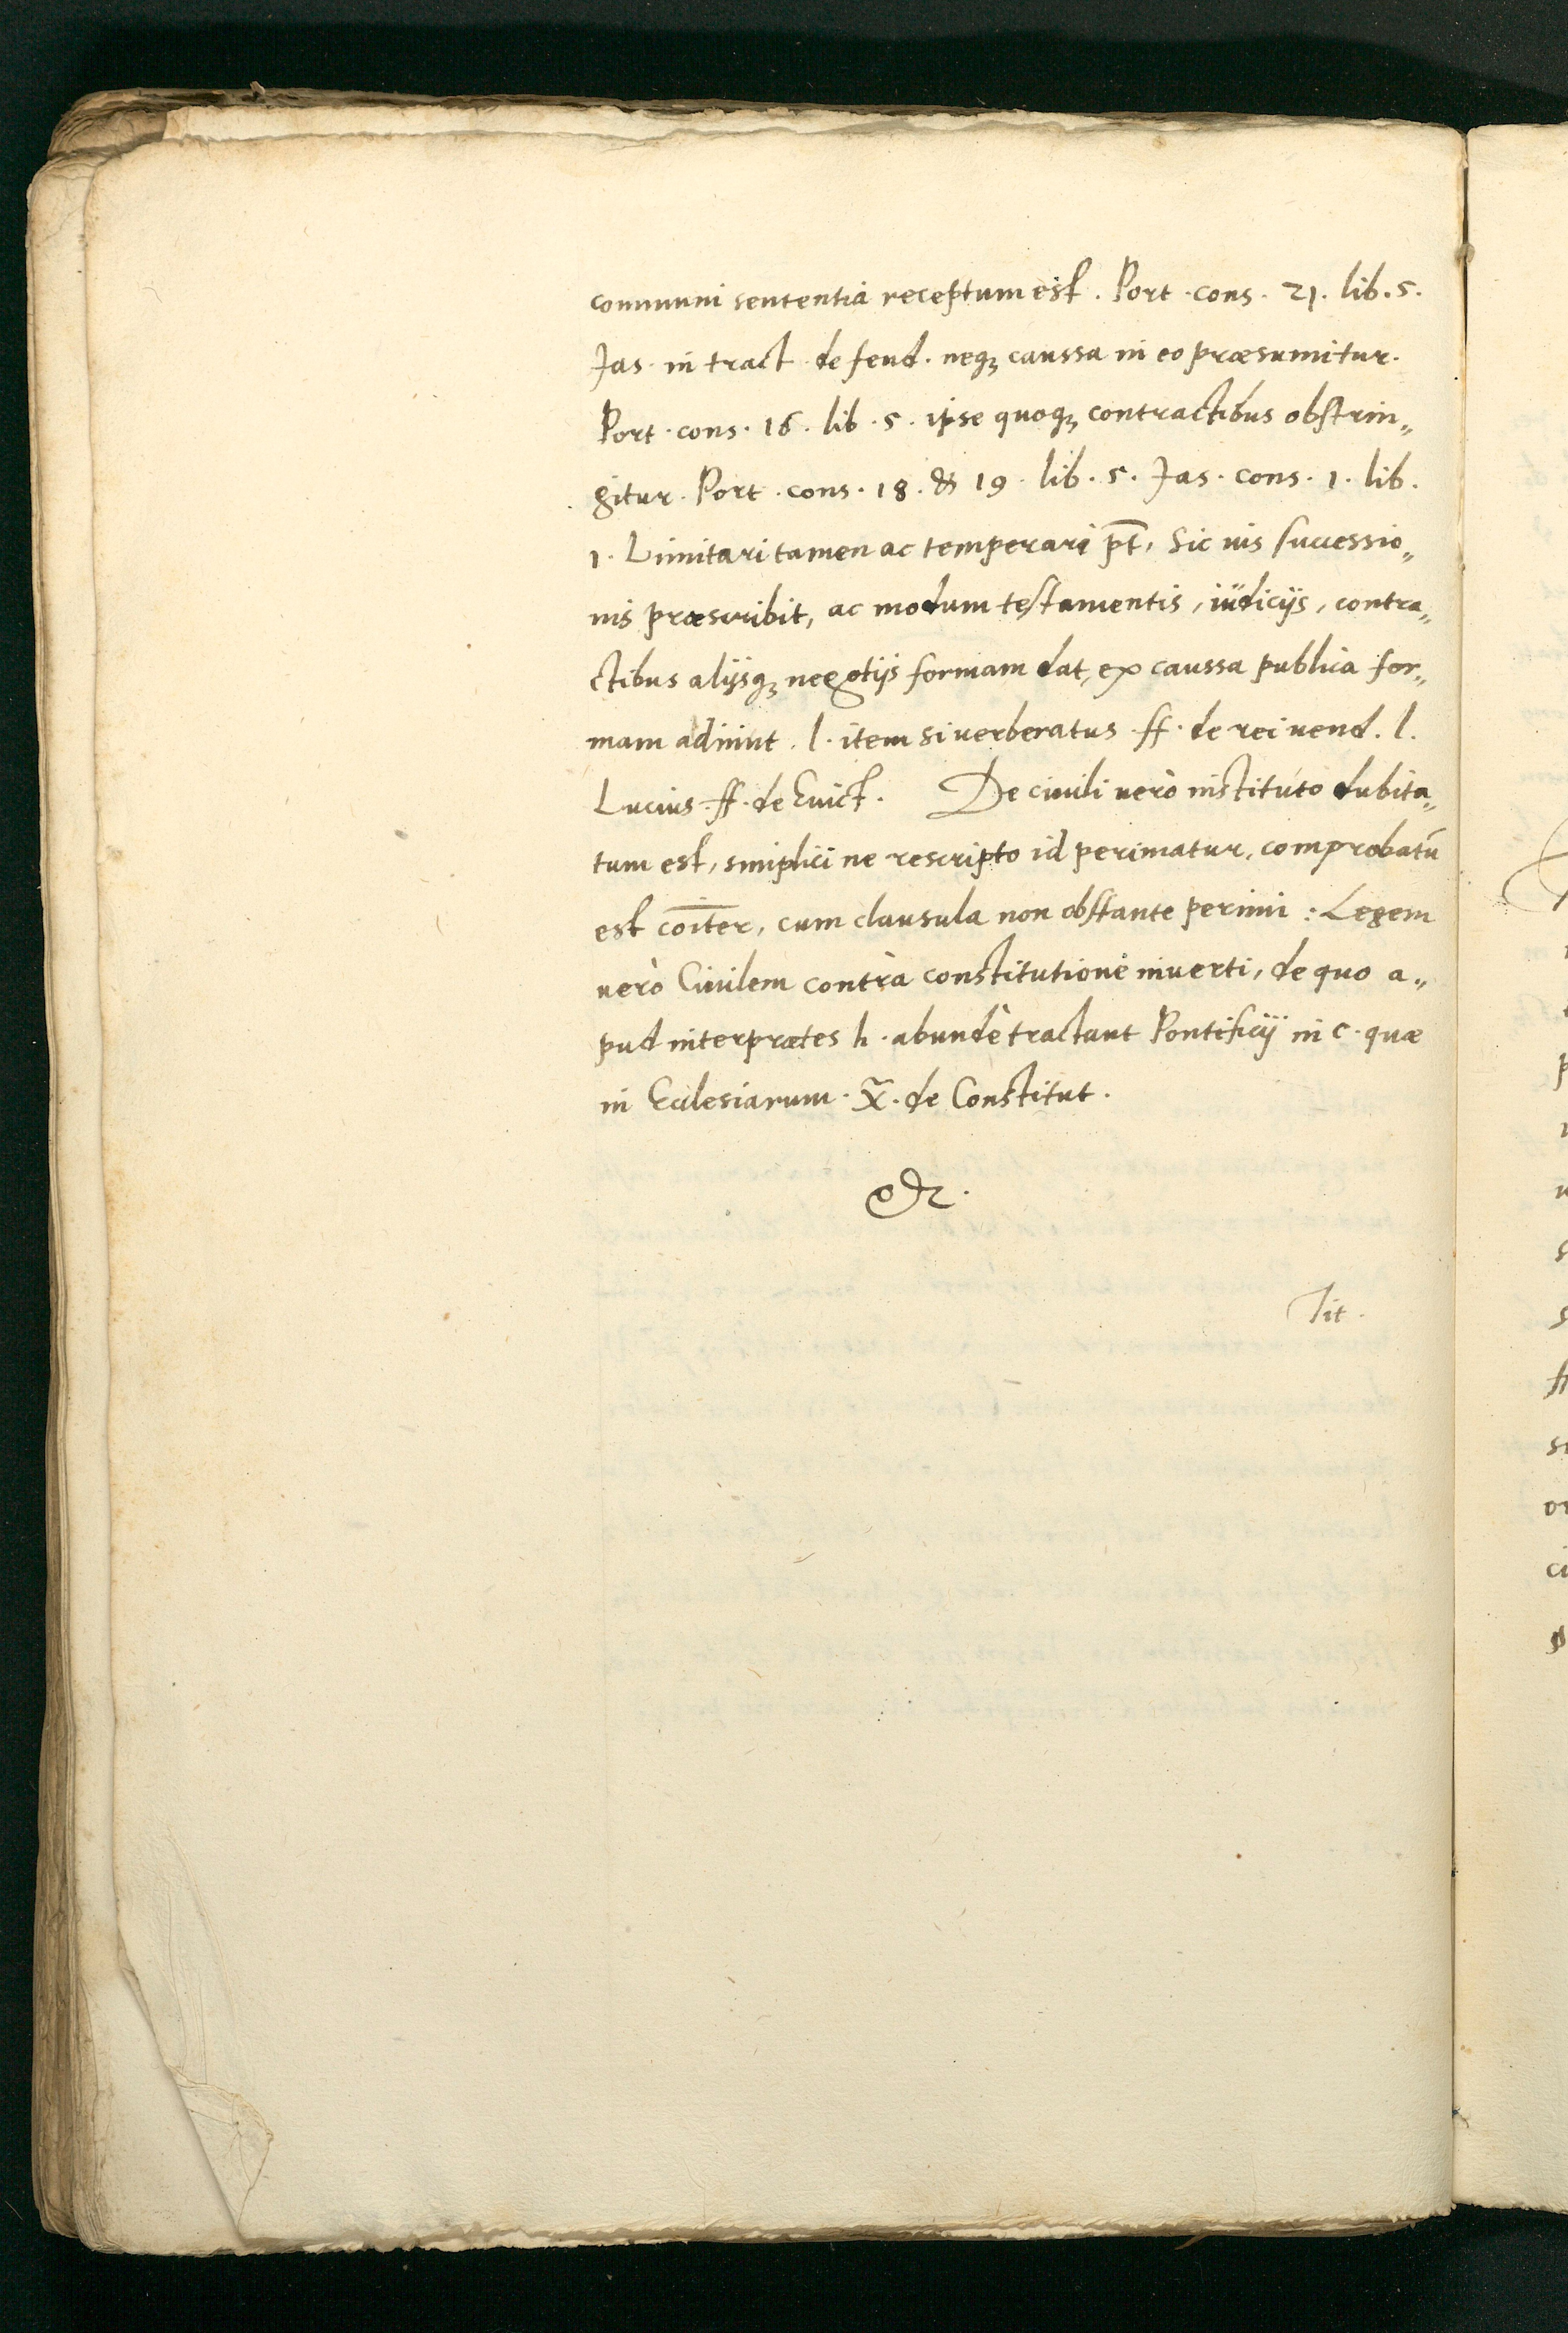 communi sententia receptum est. Port. cons. 21. lib. 5.
Jas. in tract. de feud. neqꝫ caussa in eo præsumitur.
Port. cons. 16. lib. 5. ipse quoqꝫ contractibus obstrin„
gitur. Port. cons. 18. & 19. lib. 5. Jas. cons. 1. lib.
1. Limitari tamen ac temperari pt̄, Sic uis successio„
nis præscribit, ac modum testamentis, iudicijs, contra„
ctibus alijsqꝫ negotijs formam dat, ex caussa publica for„
mam adimit. l. item si uerberatus. ff. de rei uend. l.
Lucius. ff. de Euict. De ciuili uerò instituto dubita„
tum est, simplici ne rescripto id perimatur, comprobatū
est coīter, cum clausula non obstante perimi: Legem
uerò Ciuilem contra constitutionē inuerti, de quo a„
pud interprætes h. abundè tractant Pontificij in c. quæ
in Ecclesiarum. X̃. de Constitut.
&c.
Tit.